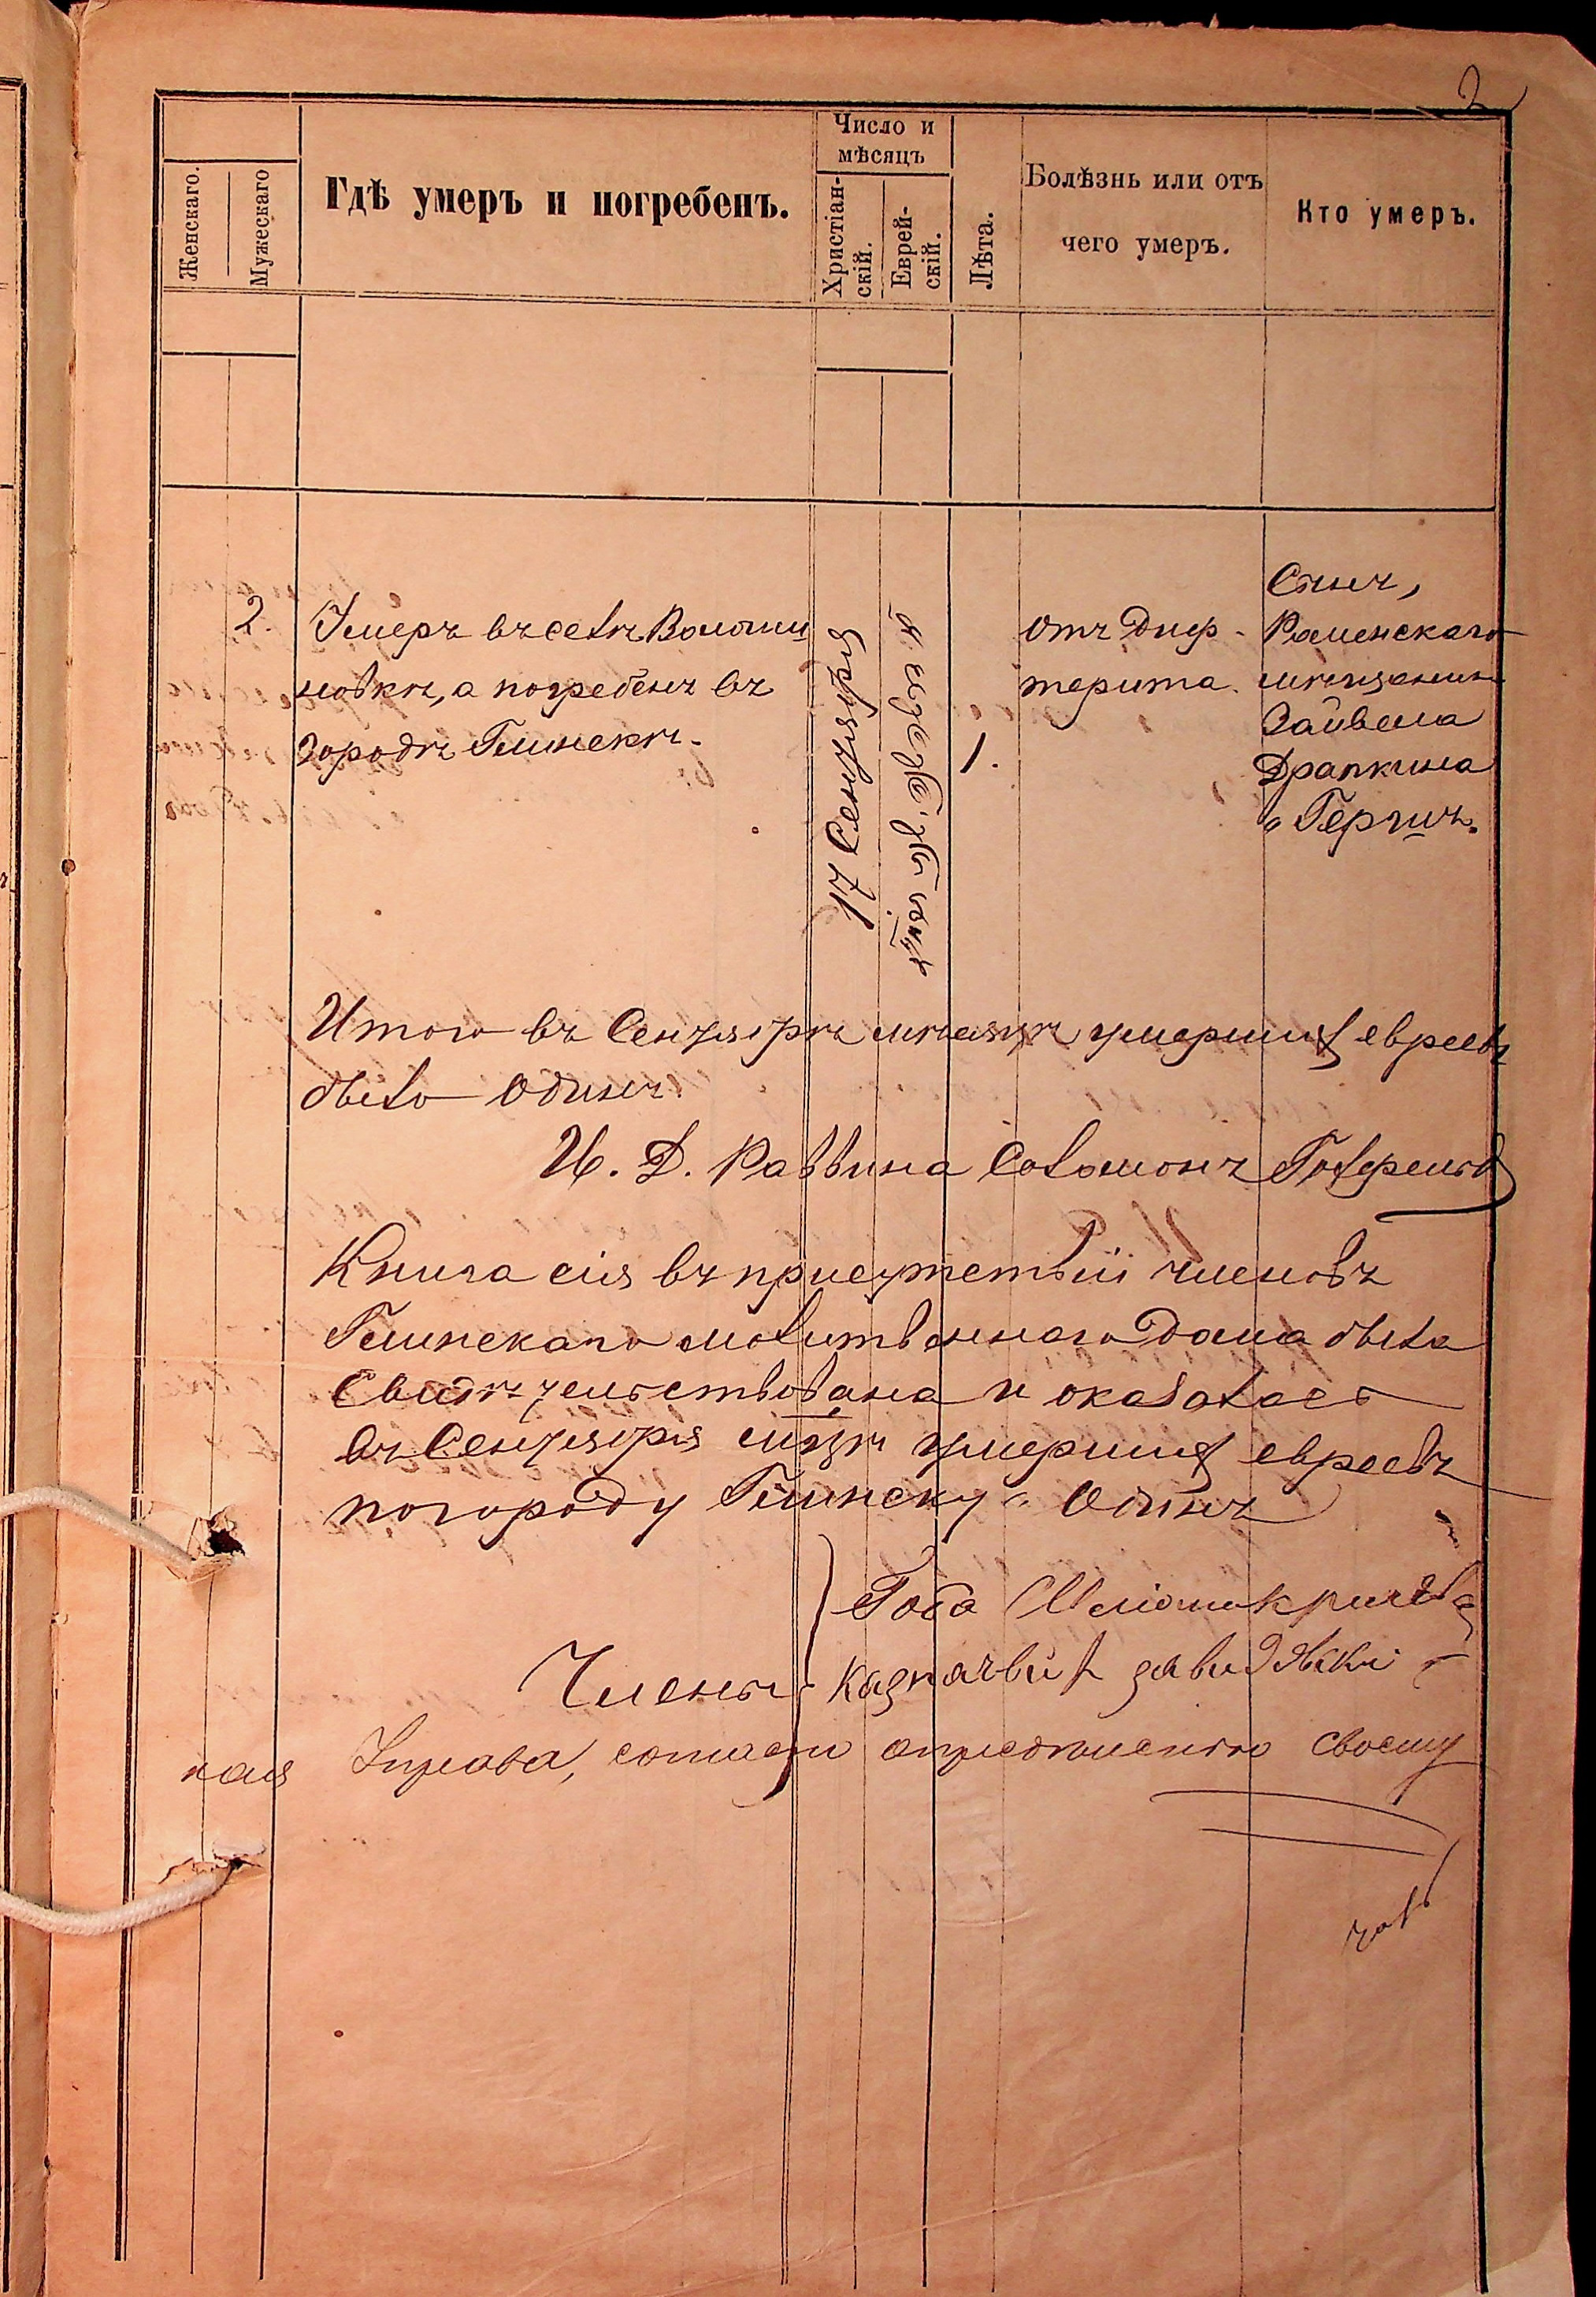 2
Женскаго.
Мужескаго
Гдѣ умеръ и погребенъ.
Число и
мѣсяцъ
Христіан-
скій.
Еврей-
скій.
Лѣта.
Болѣзнь или отъ
чего умеръ.
Кто умеръ.
2.
Умеръ въ селѣ Волоши
новкѣ, а погребенъ въ
городѣ Глинскѣ.
17 Сентября
1.
отъ диф-
терита.
Сынъ,
Роменскаго
мѣщанина
Зайвела
Драпкина
Гершъ.
Итого въ Сентябрѣ мѣсяцѣ умершихъ евреевъ
было одинъ
И. Д. Раввина Соломонъ
Книга сія въ присутствіи членовъ
Глинскаго молитвеннаго дома была
Свидѣтельствована и оказалась
въ Сентября мцѣ умершихъ евреевъ
по городу Глинску Одинъ
Члены
казначей
кая Управа, согласно опредѣленію своему